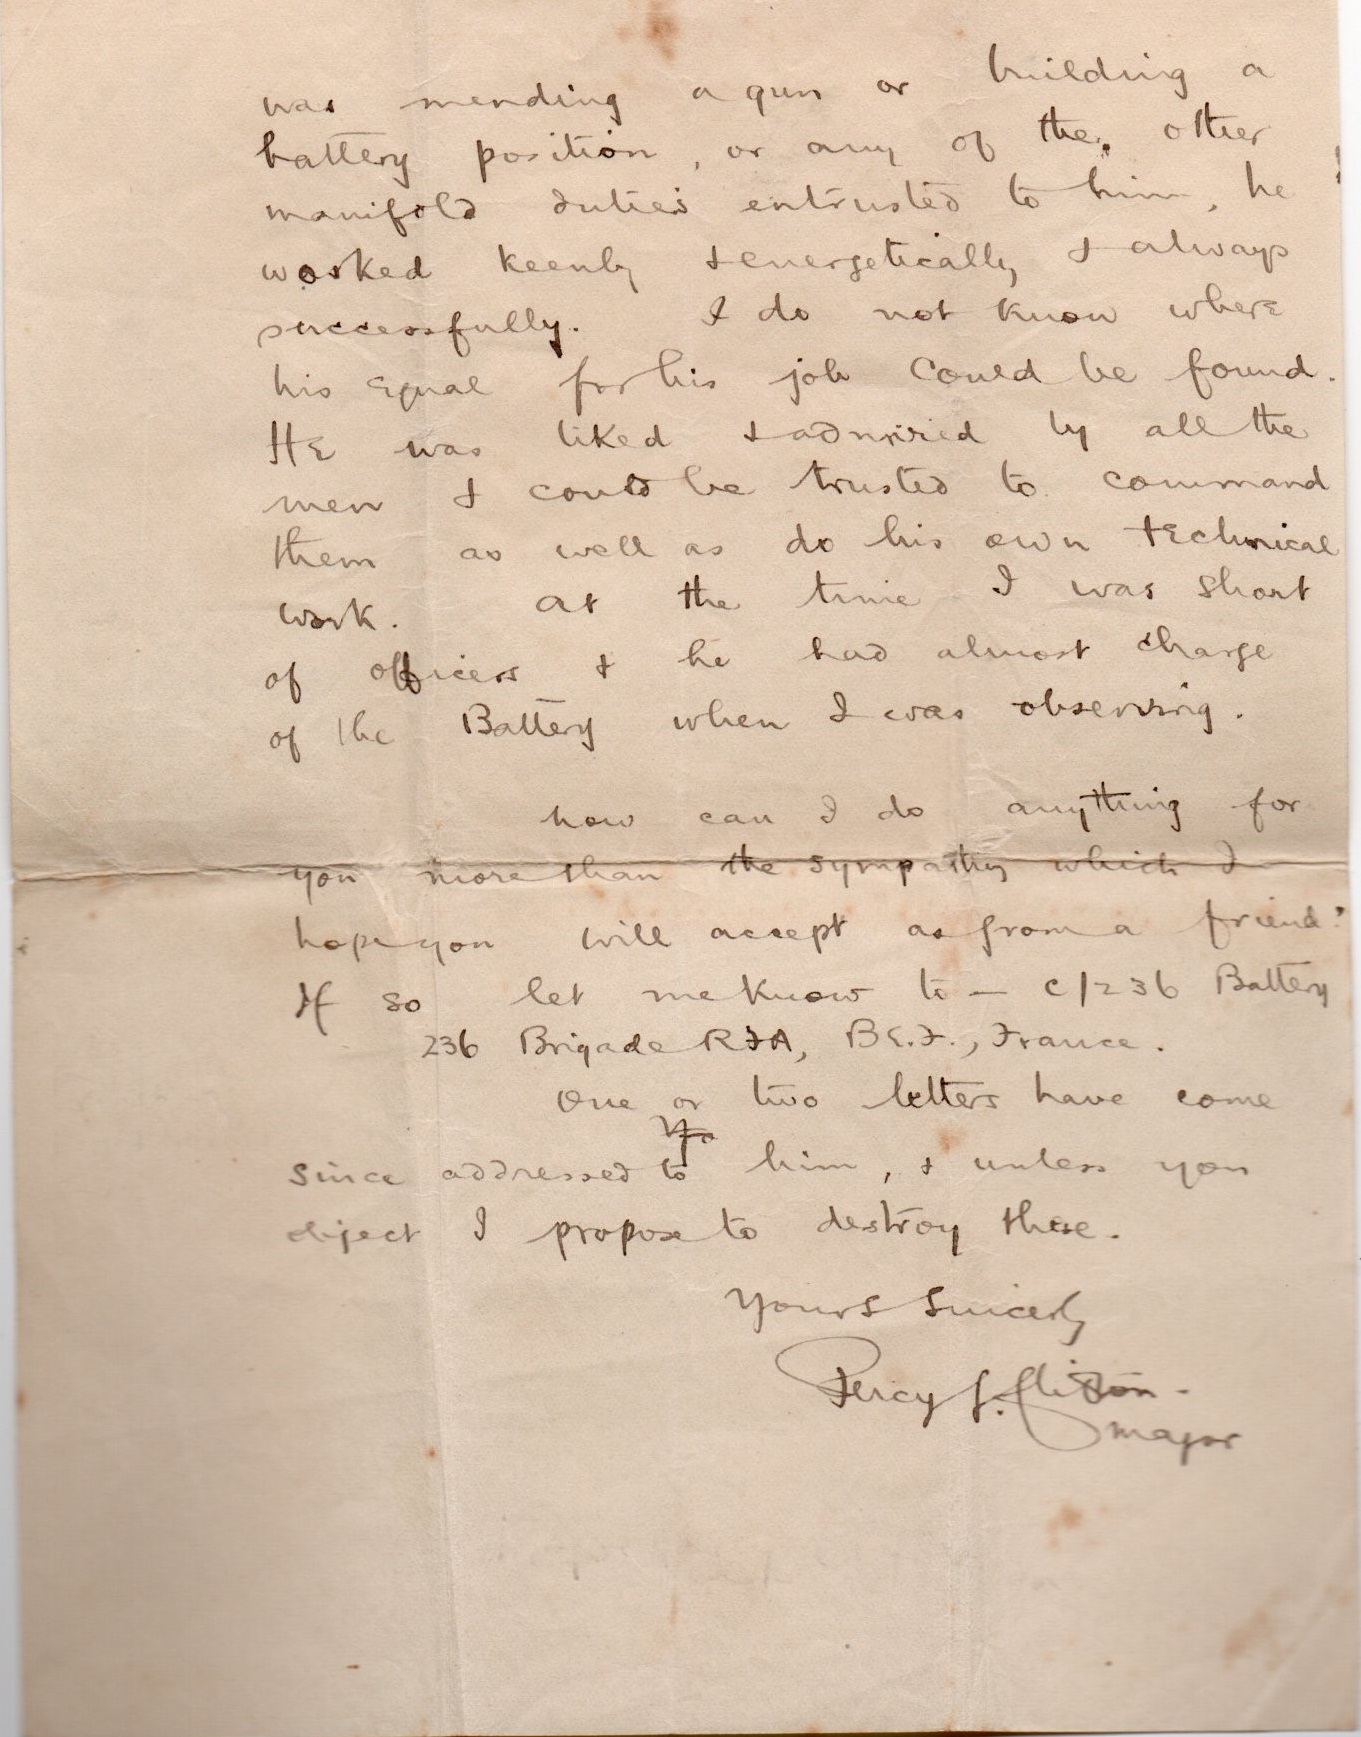 was mending a gun or building a
battery position, or any of the other
manifold duties entrusted to him, he
worked keenly & energetically & always
successfully. I do not know where
his equal for his job could be found.
He was liked & admired by all the
men & could be trusted to command
them as well as do his own technical
work. At the time I was short
of officers & he had almost charge
of the Battery when I was observing.
Now can I do anything for
you more than the sympathy which I
hope you will accept as from a friend?
If so let me know to — C/236 Battery
236 Brigade RFA, B.E.F., France.
One or two letters have come
since addressed to him, & unless you
object I propose to destroy these.
Yours sincerly
Percy J. Clifton -
Major